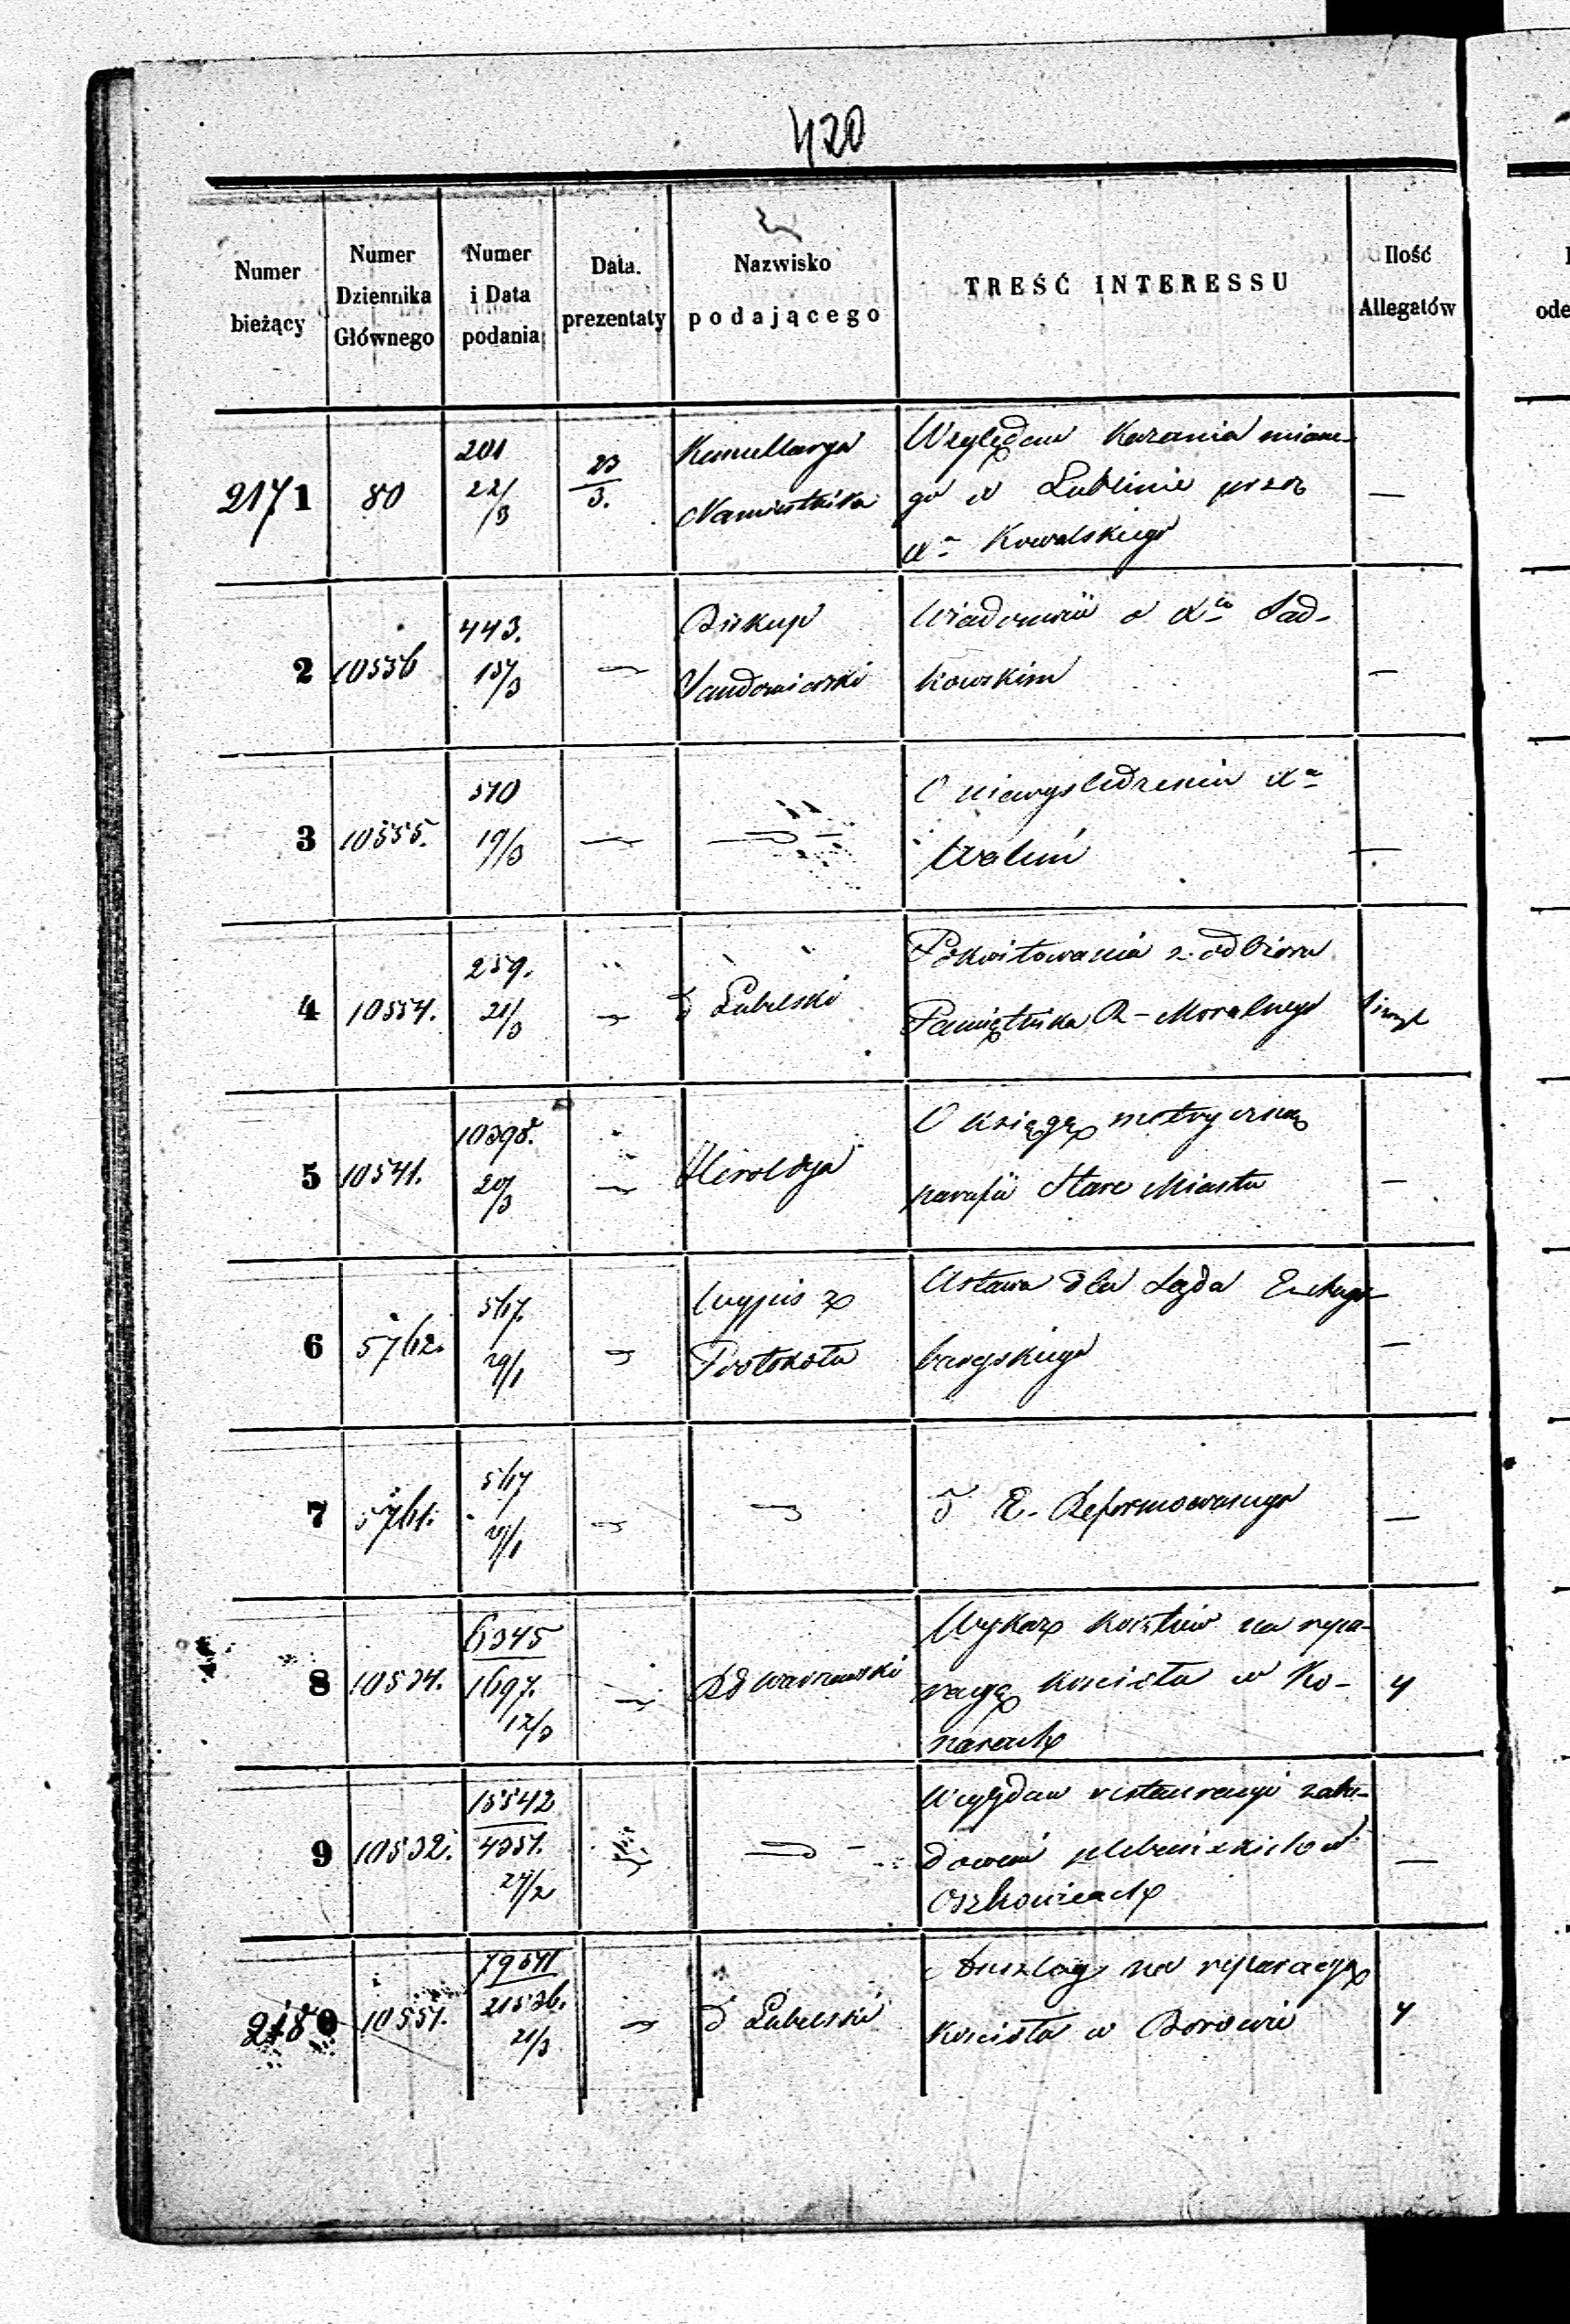 420
Numer bieżący | Numer Dziennika Głównego | Numer i Data podania | Data prezentaty | Nazwisko podającego | TREŚĆ INTERESSU | Ilość Allegatów
2171 | 80 | 201 22/3 | 23/3. | Kancellarya Namiestnika | Względem Kazania miane-
go w Lublinie przez
Xa Kowalskiego | —
2 | 10556 | 443. 15/3 | — | Biskup Sandomierski | Wiadomość o Xu Sad-
kowskim | —
3 | 10555. | 510 19/3 | — | — | O niewyśledzeniu Xa
Woluń | —
4 | 10554. | 259. 21/3 | — | d Lubelski | Pokwitowania z odbioru
Pamiętnika R-Moralnego
5 | 10541. | 10398. 20/3 | — | Heroldya | O księgę metryczną
parafii Stare Miasto | —
6 | 5762. | 517. 29/1 | — | Wypis z Protokołu | Ustawa dla Sądu E-Augs-
burgskiego | —
7 | 5761. | 517 29/1 | — | — | d E. Reformowanego | —
8 | 10534. | 6345 1697. 12/3 | — | RG Warszawski | Wykaz kosztów na repa-
racyę kościoła w Ko-
narach | 4
9 | 10532. | 15542 4351. 24/2 | — | — | Względem restauracyi zabu-
dowań plebańskich w
Oszkowicach | —
2180 | 10551. | 79541 21536. 21/3 | — | d Lubelski | Anszlag na reparacyę
kościoła w Borowie | 4